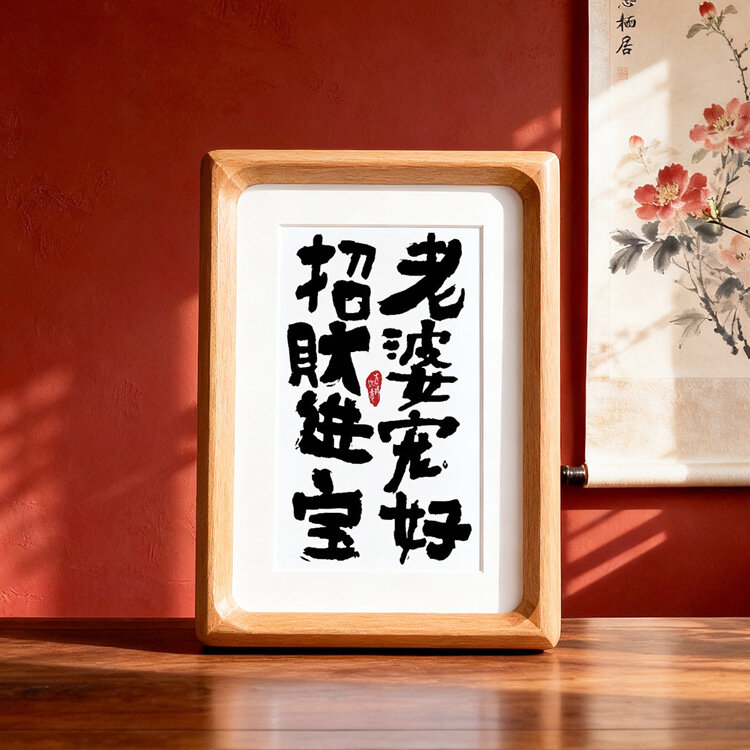 老婆宠好
招财进宝
栖居